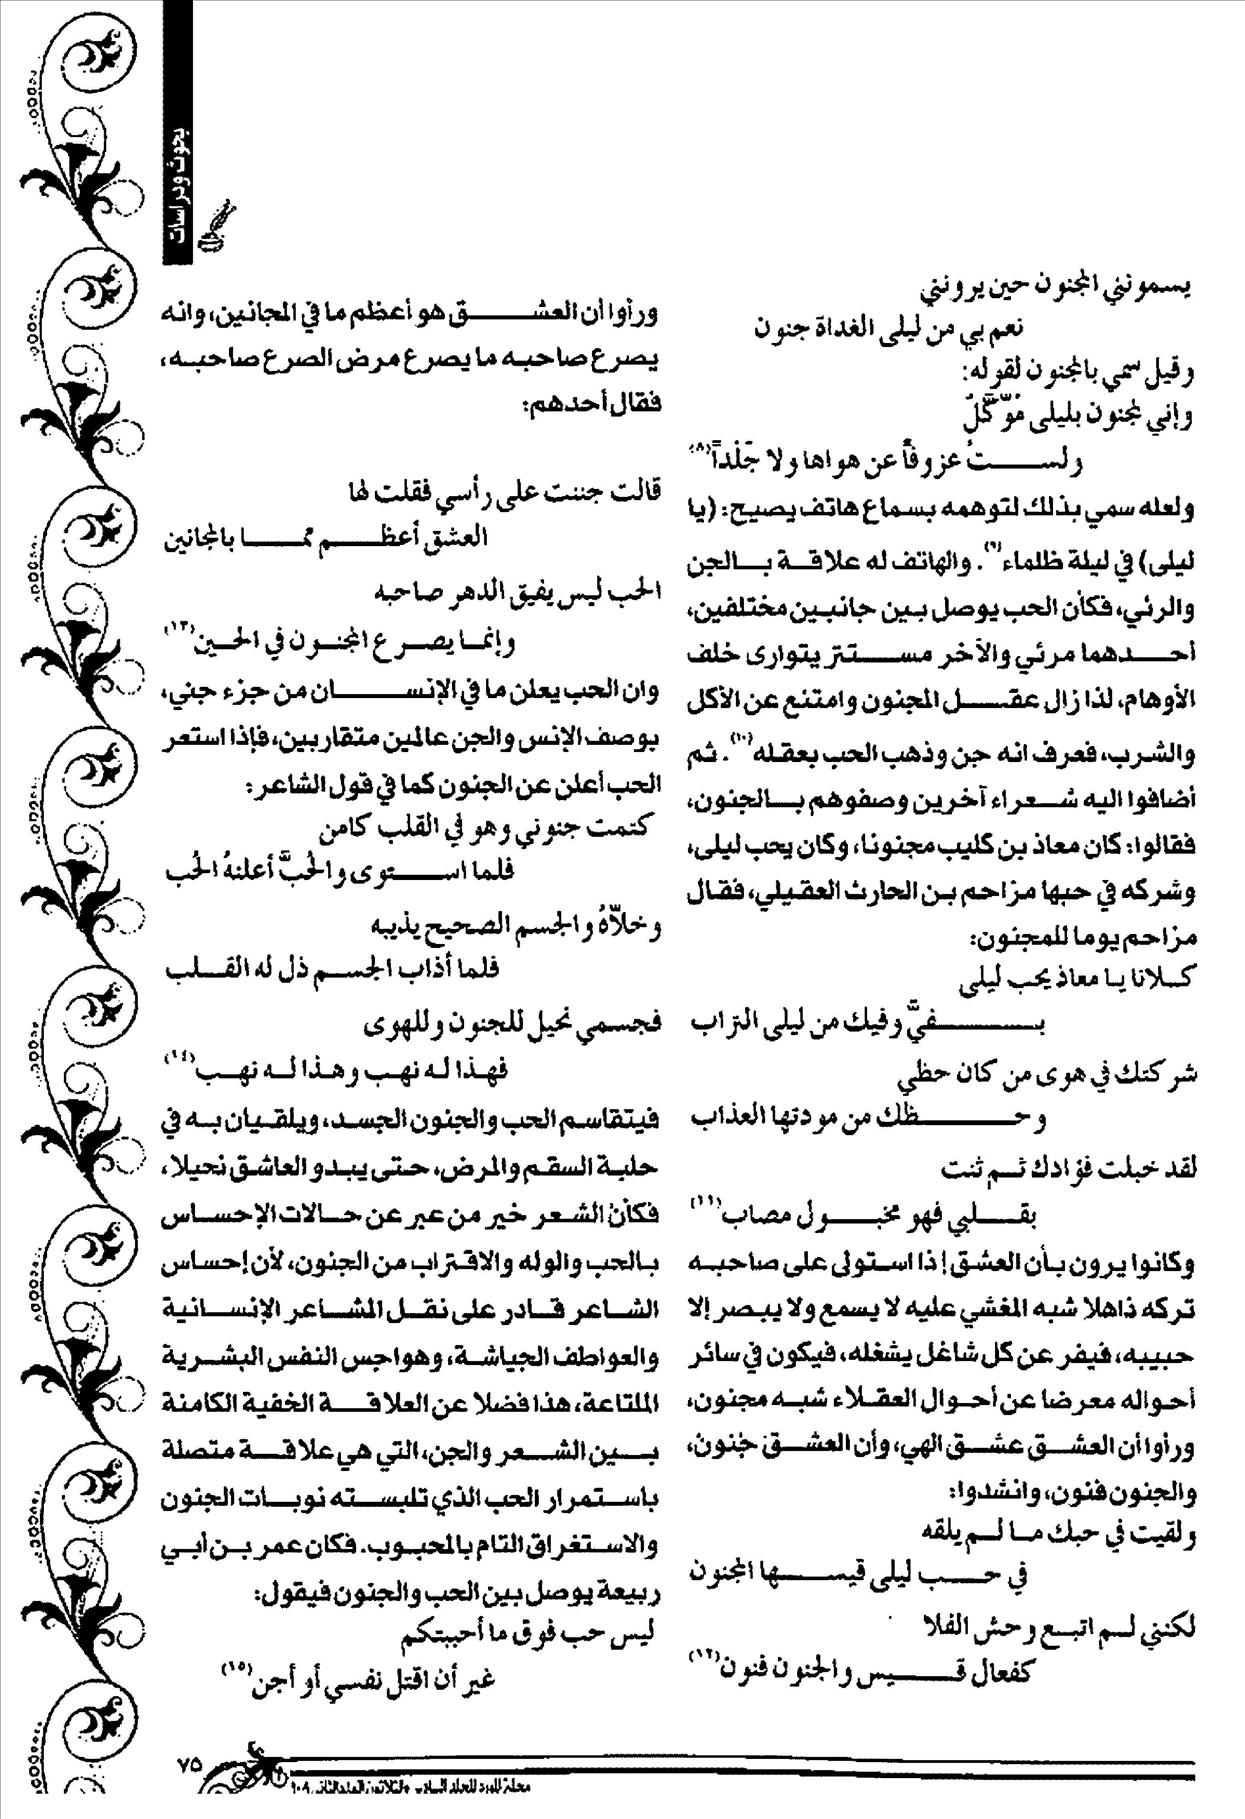 بحوث ودراسات
يسمونني المجنون حين يرونني
نعم بي من ليلى الغداة جنون
وقيل سمي بالمجنون لقوله:
وإني لمجنون بليلى مُوَكَّلٌ
ولستُ عزوفاً عن هواها ولا جَلْداً(٨)
ولعله سمي بذلك لتوهمه بسماع هاتف يصيح: (يا
ليلى) في ليلة ظلماء(٩). والهاتف له علاقة بالجن
والرئي، فكأن الحب يوصل بين جانبين مختلفين،
أحدهما مرئي والآخر مستتر يتوارى خلف
الأوهام، لذا زال عقل المجنون وامتنع عن الأكل
والشرب، فعرف انه جن وذهب الحب بعقله(١٠). ثم
أضافوا اليه شعراء آخرين وصفوهم بالجنون،
فقالوا: كان معاذ بن كليب مجنونا، وكان يحب ليلى،
وشركه في حبها مزاحم بن الحارث العقيلي، فقال
مزاحم يوما للمجنون:
كلانا يا معاذ يحب ليلى
بفيَّ وفيك من ليلى التراب
شركتك في هوى من كان حظي
وحظك من مودتها العذاب
لقد خبلت فؤادك ثم ثنت
بقلبي فهو مخبول مصاب(١١)
وكانوا يرون بأن العشق إذا استولى على صاحبه
تركه ذاهلا شبه المغشي عليه لا يسمع ولا يبصر إلا
حبيبه، فيفر عن كل شاغل يشغله، فيكون في سائر
أحواله معرضا عن أحوال العقلاء شبه مجنون،
ورأوا أن العشق عشق الهي، وأن العشق جُنونٌ،
والجنون فنون، وانشدوا:
ولقيت في حبك ما لم يلقه
في حب ليلى قيسها المجنون
لكنني لم اتبع وحش الفلا
كفعال قيس والجنون فنون(١٢)
ورأوا أن العشق هو أعظم ما في المجانين، وانه
يصرع صاحبه ما يصرع مرض الصرع صاحبه،
فقال أحدهم:
قالت جننت على رأسي فقلت لها
العشق أعظم مما بالمجانين
الحب ليس يفيق الدهر صاحبه
وإنما يصرع المجنون في الحين(١٣)
وان الحب يعلن ما في الإنسان من جزء جني،
بوصف الإنس والجن عالمين متقاربين، فإذا استعر
الحب أعلن عن الجنون كما في قول الشاعر:
كتمت جنوني وهو في القلب كامن
فلما استوى والحُبَّ أعلنهُ الحُب
وخلاّهُ والجسم الصحيح يذيبه
فلما أذاب الجسم ذل له القلب
فجسمي نحيل للجنون وللهوى
فهذا له نهب وهذا له نهب(١٤)
فيتقاسم الحب والجنون الجسد، ويلقيان به في
حلبة السقم والمرض، حتى يبدو العاشق نحيلا،
فكأن الشعر خير من عبر عن حالات الإحساس
بالحب والوله والاقتراب من الجنون، لأن إحساس
الشاعر قادر على نقل المشاعر الإنسانية
والعواطف الجياشة، وهواجس النفس البشرية
الملتاعة، هذا فضلا عن العلاقة الخفية الكامنة
بين الشعر والجن، التي هي علاقة متصلة
باستمرار الحب الذي تلبسته نوبات الجنون
والاستغراق التام بالمحبوب. فكان عمر بن أبي
ربيعة يوصل بين الحب والجنون فيقول:
ليس حب فوق ما أحببتكم
غير أن اقتل نفسي أو أجن(١٥)
٧٥
مجلة المورد المجلد السادس والثلاثون العدد الثاني